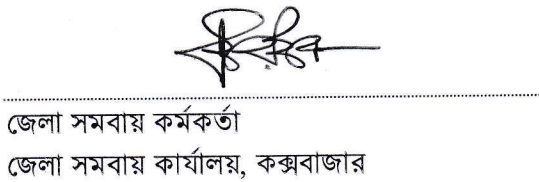 জেলা সমবায় কর্মকর্তা
জেলা সমবায় কার্যালয়, কক্সবাজার